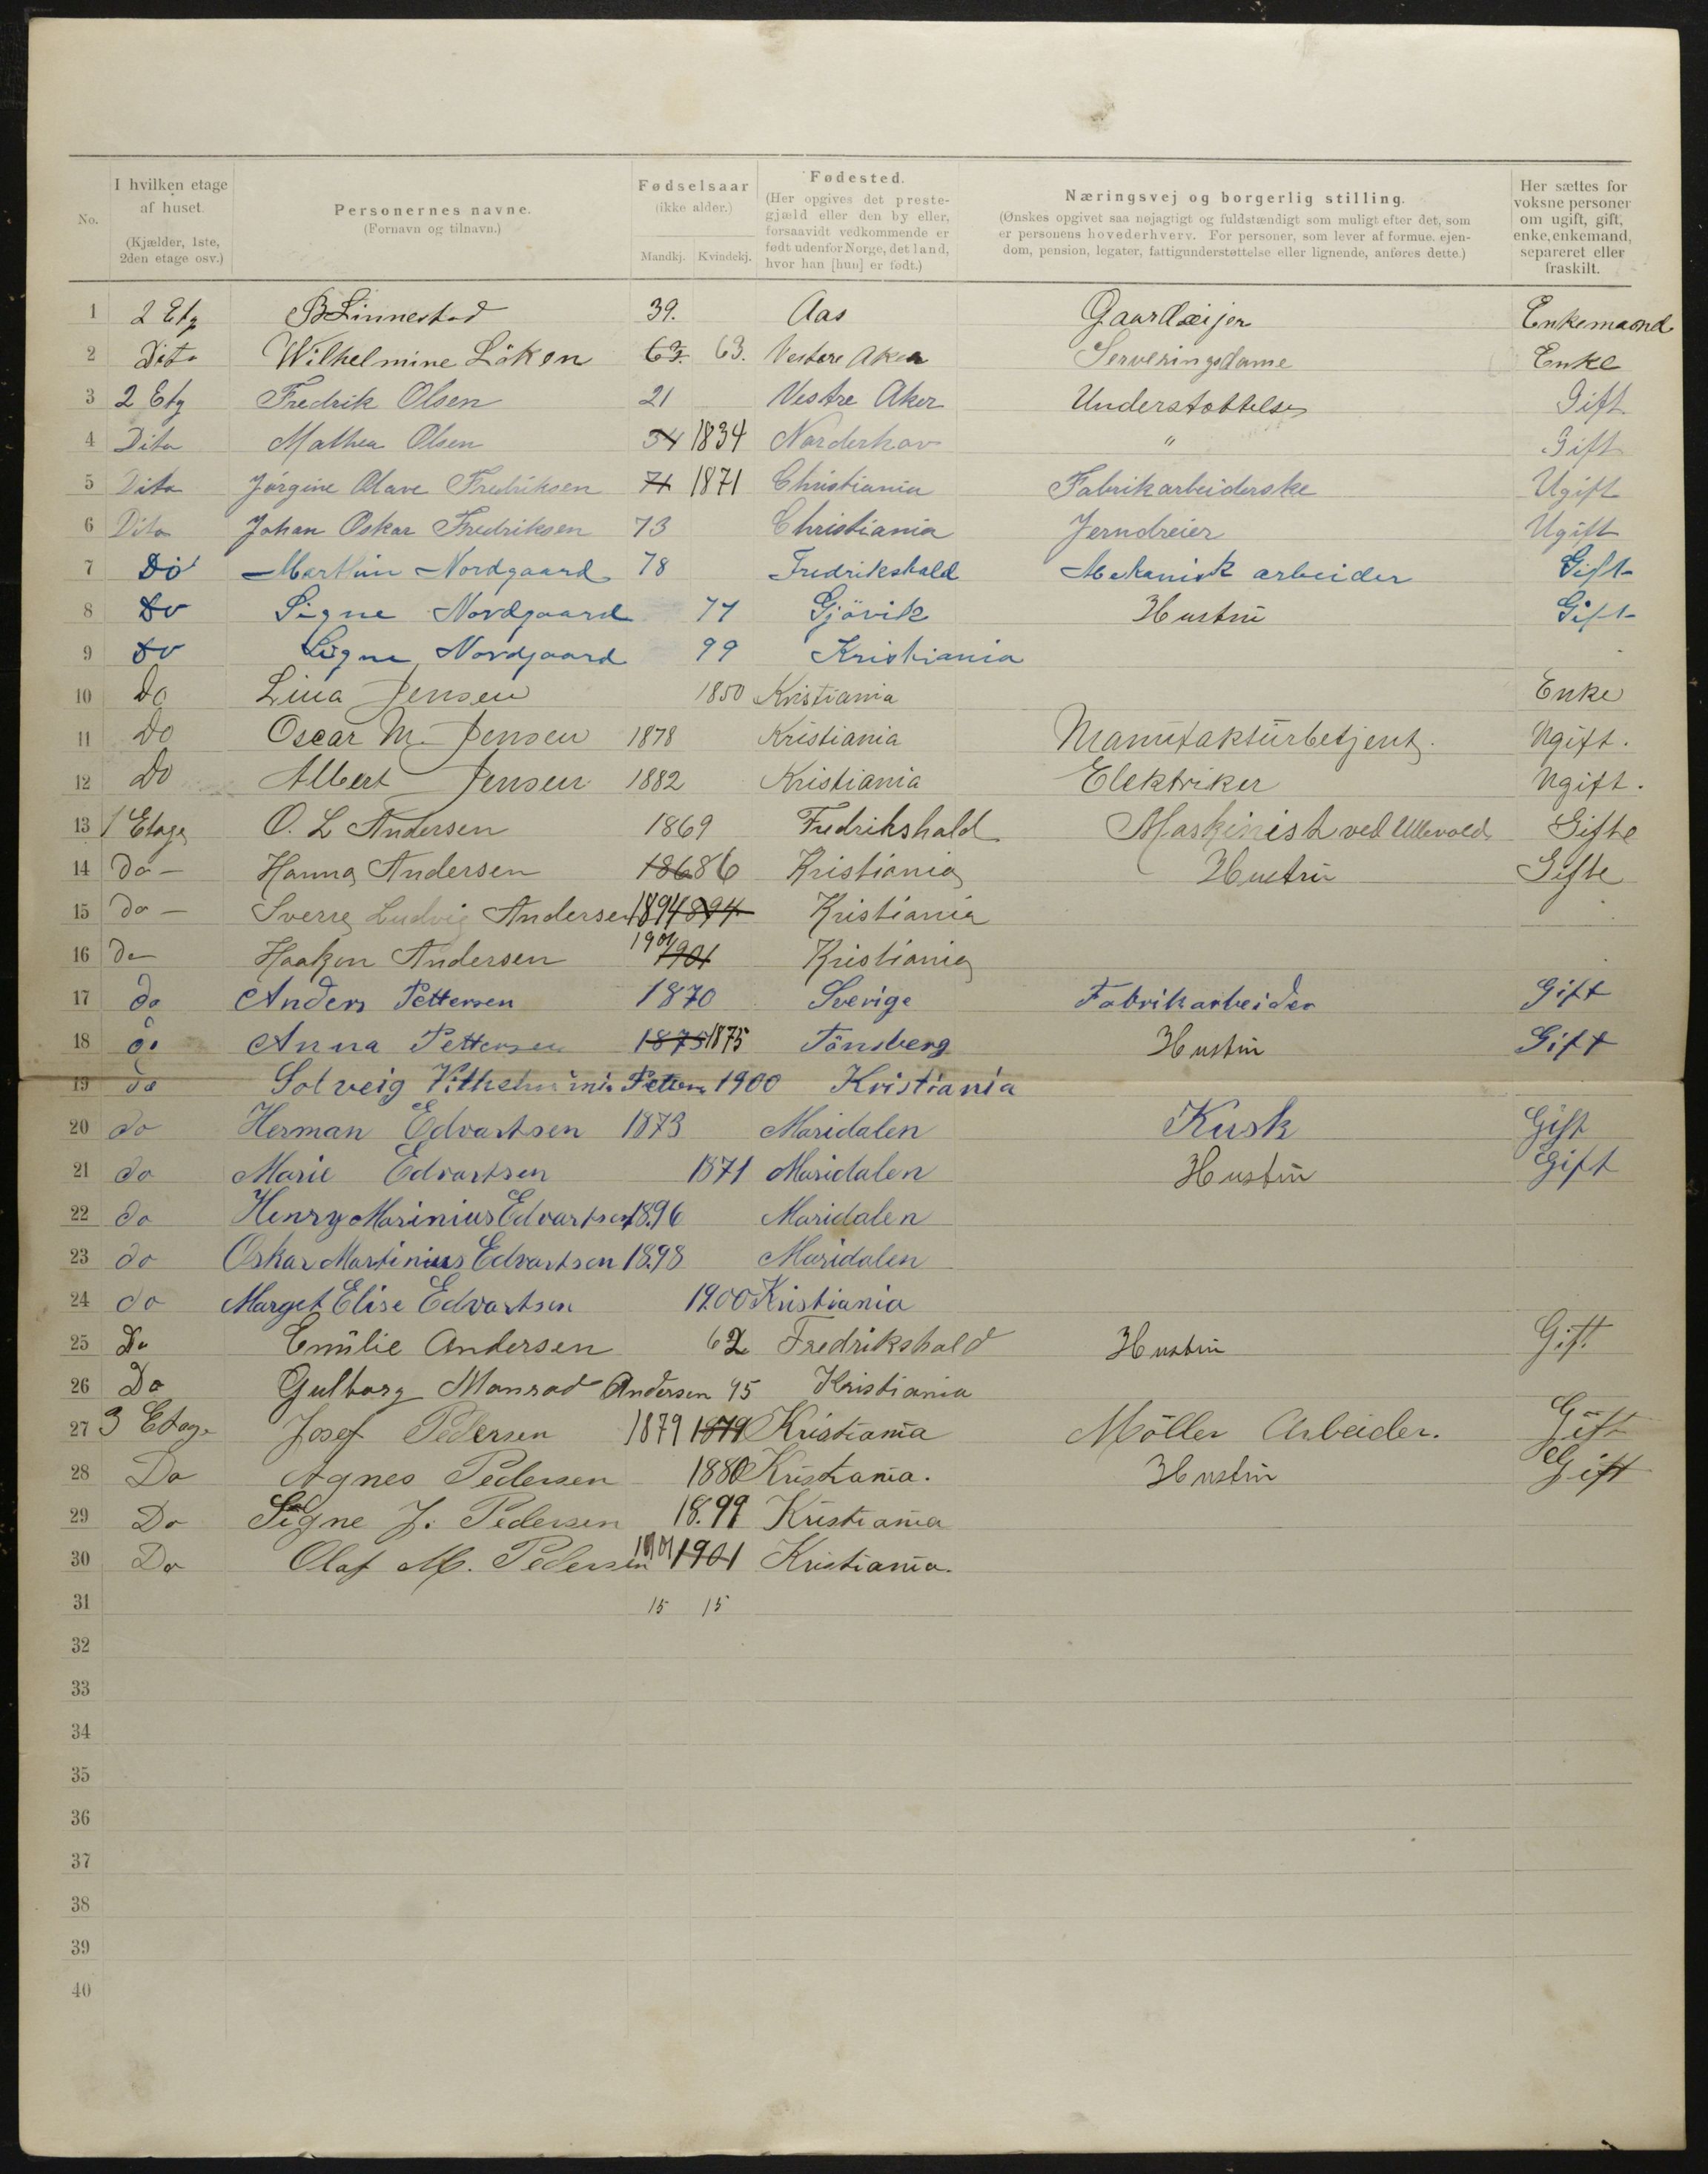 No.
I hvilken etage
af huset.
(Kjælder, 1ste,
2den etage osv.)
Personernes navne.
(Fornavn og tilnavn.)
Fødselsaar
(ikke alder.)
Mandkj. Kvindekj.
Fødested.
(Her opgives det preste-
gjæld eller den by eller,
forsaavidt vedkommende er
født udenfor Norge, det land,
hvor han [hun] er født.)
Næringsvej og borgerlig stilling.
(Ønskes opgivet saa nøjagtigt og fuldstændigt som muligt efter det, som
er personens hovederhverv. For personer, som lever af formue, ejen-
dom, pension, legater, fattigunderstøttelse eller lignende, anføres dette.)
Her sættes for
voksne personer
om ugift, gift,
enke, enkemand,
separeret eller
fraskilt.
1 2 Etg B Linnestad 39. Aas Gaardeijer Enkemaand
2 Dito Wilhelmine Löken 63. 63. Vestere Aker Serveringsdame Enke
3 2 Etg Fredrik Olsen 21 Vestre Aker Understøttelse Gift
4 Dito Mathea Olsen 34 1834 Norderhov " Gift
5 Dito Jørgine Olave Fredriksen 71 1871 Christiania Fabrikarbeiderske Ugift
6 Dito Johan Oskar Fredriksen 73 Christiania Jerndreier Ugift
7 Do Marthin Nordgaard 78 Fredrikshald Mekanisk arbeider Gift
8 Do Signe Nordgaard 77 Gjövik Hustru Gift
9 Do Signe Nordgaard 99 Kristiania
10 Do Lina Jensen 1850 Kristiania Enke
11 Do Oscar M. Jensen 1878 Kristiania Manufakturbetjent. Ugift.
12 Do Albert Jensen 1882 Kristiania Elektriker Ugift.
13 1 Etage O. L Andersen 1869 Fredrikshald Maskinist ved Ullevold Gifte
14 do — Hanna Andersen 186886 Kristiania Hustru Gifte
15 do — Sverre Ludvig Andersen 1894 894 Kristiania
16 do Haakon Andersen 1901 1901 Kristiania
17 do Anders Pettersen 1870 Sverige Fabrikarbeider Gift
18 do Anna Pettersen 1875 1875 Tönsberg Hustru Gift
19 do Solveig Vilhelmine Petters 1900 Kristiania
20 do Herman Edvartsen 1873 Maridalen Kusk Gift
21 do Marie Edvartsen 1871 Maridalen Hustru Gift
22 do Henry Marinius Edvartsen 1896 Maridalen
23 do Oskar Martinius Edvartsen 1898 Maridalen
24 do Marget Elise Edvartsen 1900 Kristiania
25 Do Emilie Andersen 62 Fredrikshald Hustru Gift.
26 Do Gulborg Monrad Andersen 95 Kristiania
27 3 Etage Josef Pedersen 1879 1879 Kristiania Möller Arbeider. Gift
28 Do Agnes Pedersen 1880 Kristiania. Hustru Gift
29 Do Signe J. Pedersen 18.99 Kristiania
30 Do Olaf M. Pedersen 1901 1901 Kristiania.
31 15 15
32
33
34
35
36
37
38
39
40